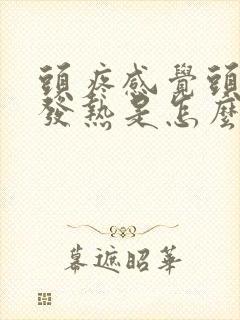 頭疼感覺頭
發熱是怎麼
幕遮昭華